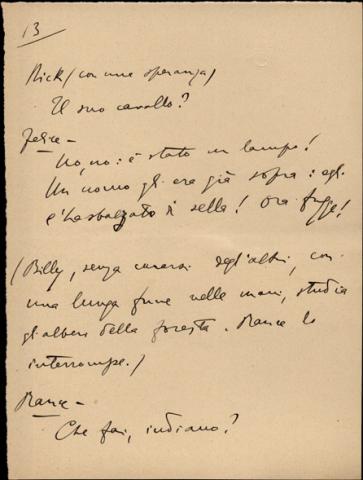 13
Nick (con una speranza)
Il suo cavallo?
Felice -
No, no: è stato un lampo!
Un uomo gli era già sopra: egli
è sbalzato di sella! Ora fugge!
(Billy, senza curarsi degli altri, con
una lunga fune nelle mani, studia
gli alberi della foresta. Rance lo
interrompe.)
Rance -
Che fai, indiano?